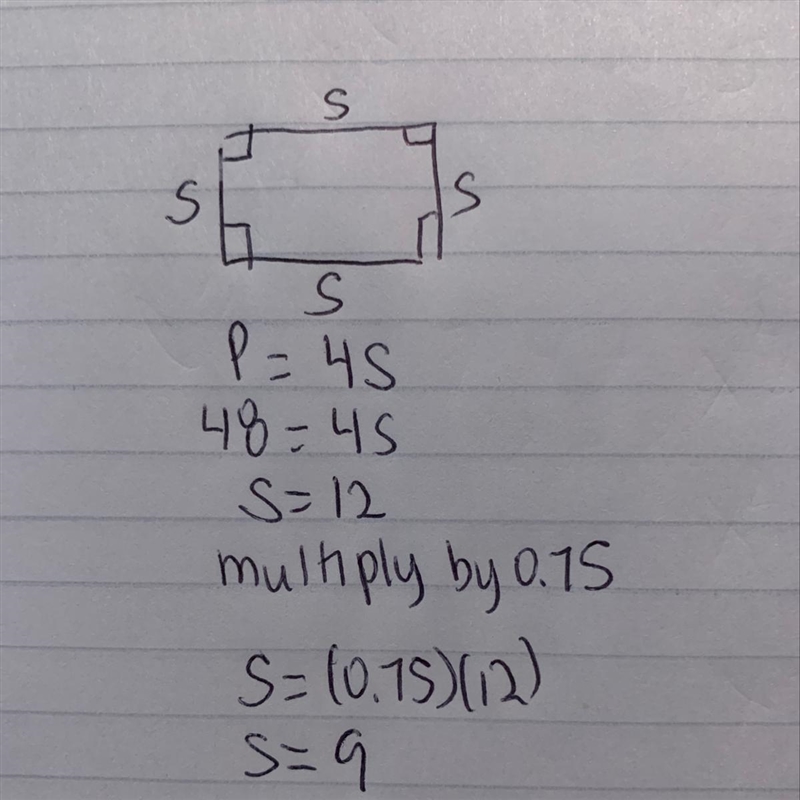 S
S S
S
P = 4S
48 = 4S
S = 12
multiply by 0.75
S = (0.75)(12)
S = 9